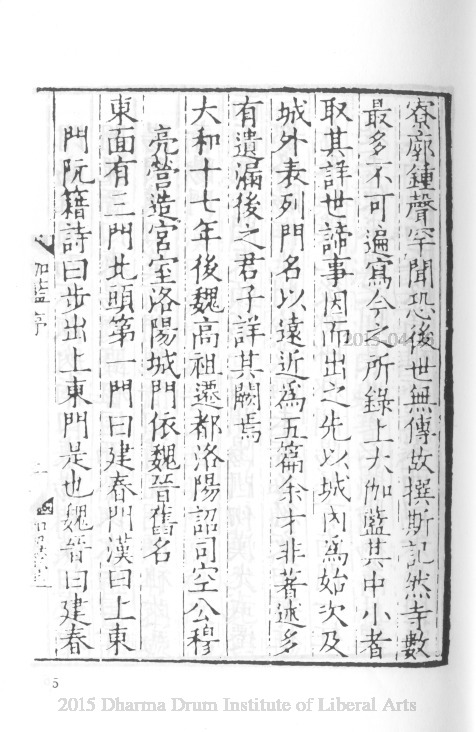 寮廓鍾聲罕聞恐後世無傳故撰斯記然寺數
最多不可遍寫今之所錄上大伽藍其中小者
取其詳世諦事因而出之先以城内為始次及
城外表列門名以遠近為五篇余才非著述多
有遺漏後之君子詳其闕焉
大和十七年後魏高祖遷都洛陽詔司空公穆
亮營造宮室洛陽城門依魏晉舊名
東面有三門北頭第一門曰建春門漢曰上東
門阮籍詩曰步出上東門是也魏晉曰建春
伽藍序
5
2015 Dharma Drum Institute of Liberal Arts